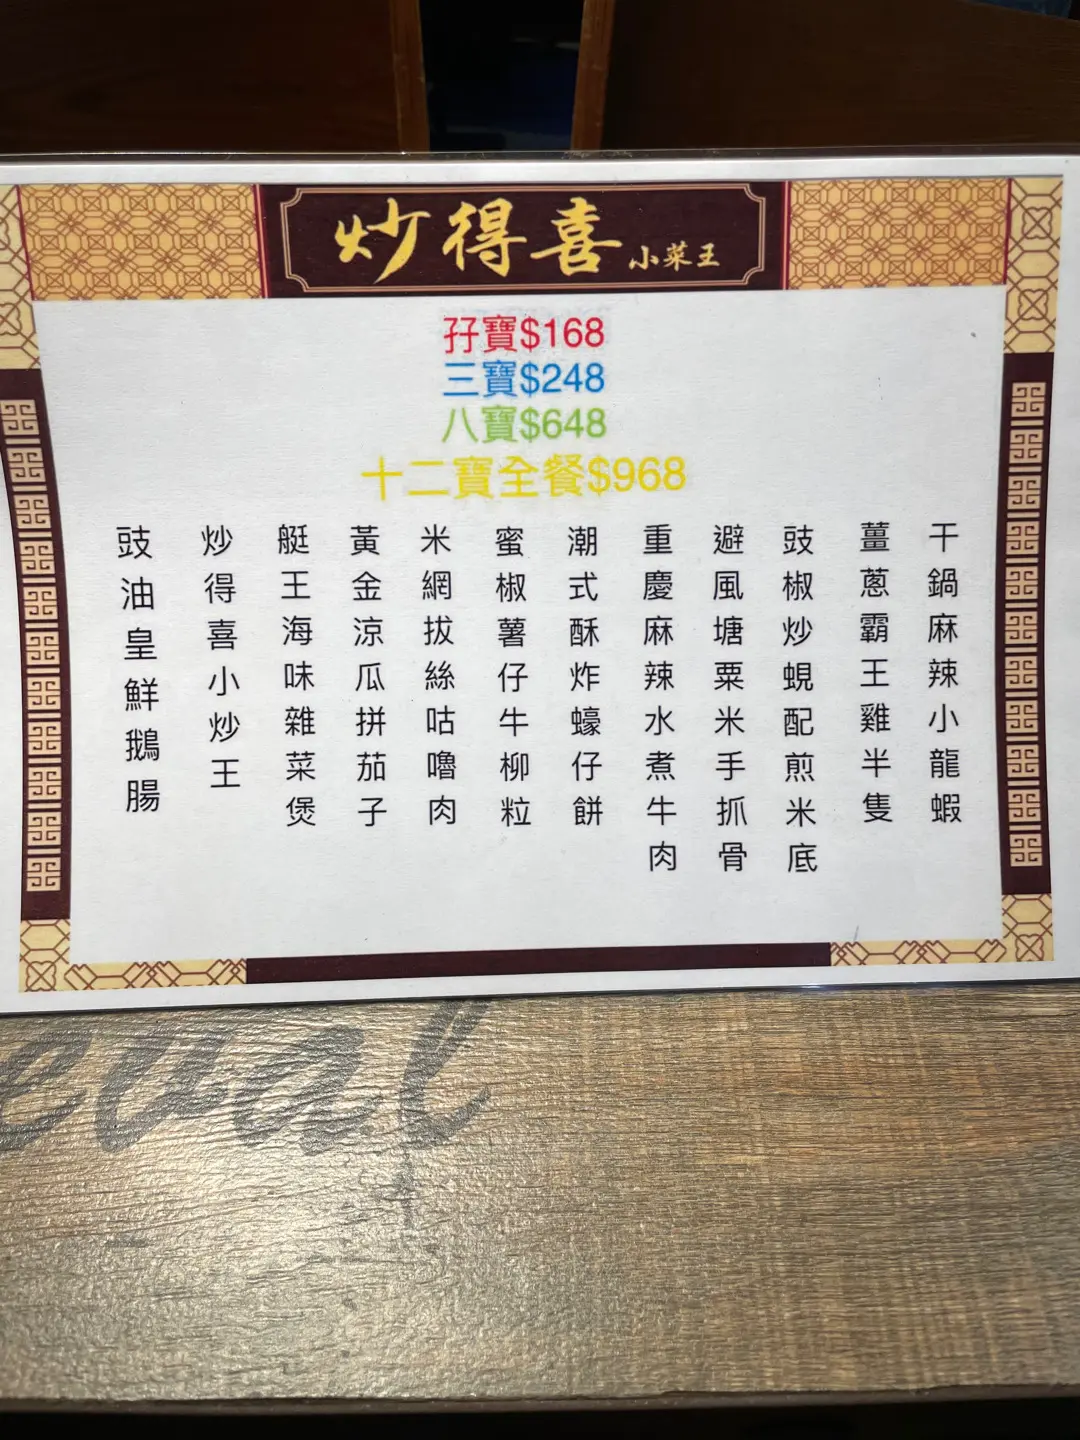 炒得喜小菜王
孖寶$168
三寶$248
八寶$648
十二寶全餐$968
干鍋麻辣小龍蝦
薑蔥霸王雞半隻
豉椒炒蜆配煎米底
避風塘粟米手抓骨
重慶麻辣水煮牛肉
潮式酥炸蠔仔餅
蜜椒薯仔牛柳粒
米網拔絲咕嚕肉
黃金涼瓜拼茄子
艇王海味雜菜煲
炒得喜小炒王
豉油皇鮮鵝腸